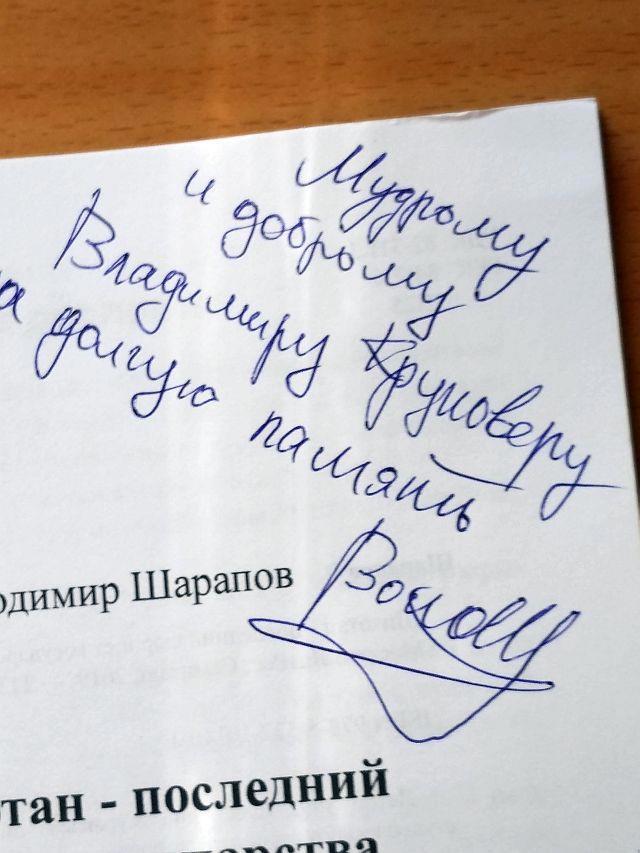 Мудрому
и доброму
Владимиру Круковеру
на долгую память
одимир Шарапов
тан - последний